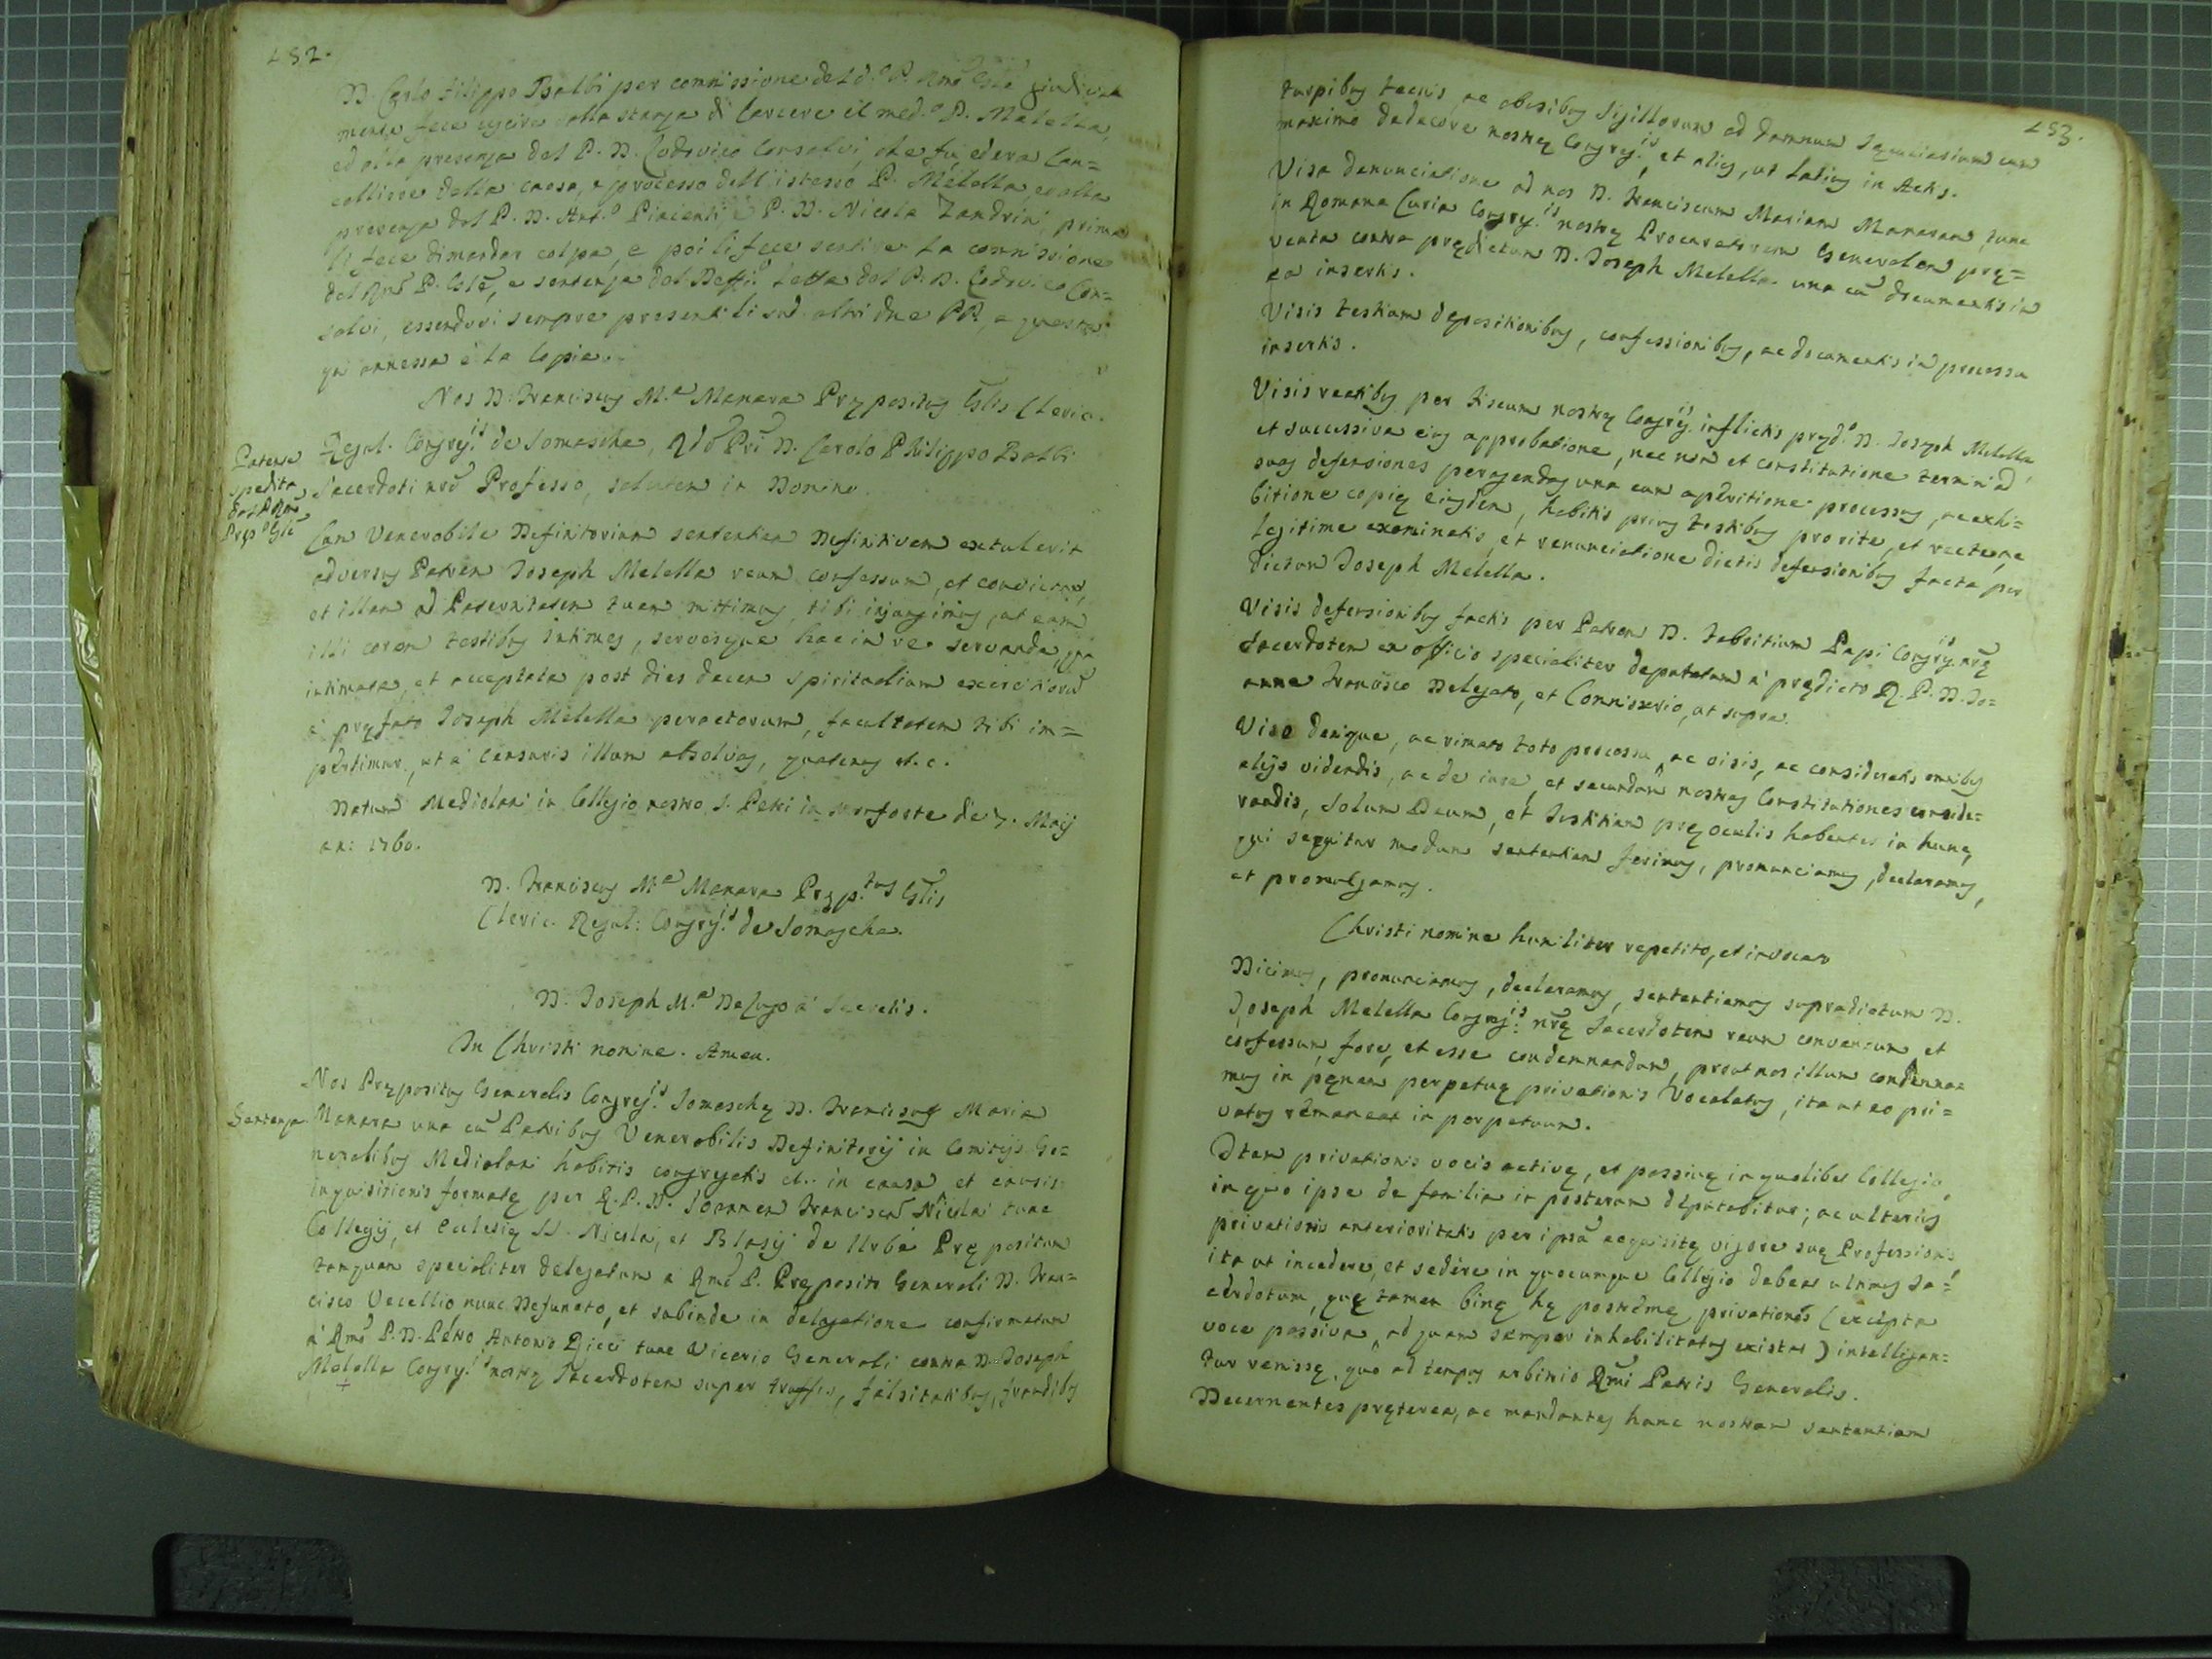 252.
D. Carlo Filippo Balbi per commissione del d.º P. Rmõ Gñle giudizial
mente fece uscire dalla stanza di Carcere il med.º P. Melella,
ed alla presenza del P. D. Lodovico Consalvi, che fu, ed era Can=
celliere della causa, e processo dell'istesso P. Melella, ed alla
presenza del P. D. Ant.º Piacenti, e P. D. Nicola Zandrini, prima
li fece dimandar colpa, e poi li fece sentire la commissione
del Rmõ P. Gñle, e sentenza del Deffi.º letta dal P. D. Lodovico Con=
salvi, essendovi sempre presenti li sud. altri due PP., e questa
qui annessa è la Copia.
Nos D. Franciscus M.ª Manara Prępositus Gñlis Cleric.
Regul. Congreg.is de Somascha, Rdõ Pri D. Carolo Philippo Balbi
Sacerdoti nrõ Professo, salutem in Domino.
Patente
spedita
dal P. Rmo
Prep.º Gñle
Cum Venerabile Definitorium sententiam Definitivam extulerit
adversus Patrem Joseph Melella reum confessum, et convictum,
et illam ad Paternitatem tuam mittimus, tibi injungimus, ut eam
illi coram testibus intimes, servesque hac in re servanda, qua
intimata, et acceptata post dies decem spiritualium exercitiorũ
à pręfato Joseph Melella peractorum, facultatem tibi im=
pertimur, ut a Censuris illum absolvas, quatenus et.c.
Datum Mediolani in Collegio nostro S. Petri in Monforte die 7. Maij
an: 1760.
D. Franciscus M.ª Manara Pręp.tus Gñlis
Cleric. Regul: Congreg.is de Somascha.
D. Joseph M.ª De Lugo à Secretis.
In Christi nomine. Amen.
Nos Prępositus Generalis Congreg.is Somaschę D. Franciscus Maria
Sentenza
Manara una cũ Patribus Venerabilis Definitorij in Comitijs Ge=
neralibus Mediolani habitis congregatis et.. in causa, et causis
inquisitionis formatę per R. P. D. Joannem Franciscũ Nicolai tunc
Collegij, et Ecclesię SS. Nicolai, et Blasij de Urbe Prępositum
tanquam specialiter delegatum a Rmõ P. Pręposito Generali D. Fran=
cisco Vecellio nunc Defuncto, et subinde in delegatione confirmatum
à Rmõ P. D. Petro Antonio Ricci tunc Vicario Generali contra D. Joseph
Melella Congreg.is nostrę Sacerdotem super truffis, falsitatibus, fraudibus
253.
turpibus lucris, ac abusibus Sigillorum ad damnum Sęcularium cum
maximo dedecore nostrę Congreg.is, et alias, ut latius in Actis.
Visa denunciatione ad nos D. Franciscum Mariam Manaram tunc
in Romana Curia Congreg.is nostrę Procuratorem Generalem prę=
venta contra prędictum D. Joseph Melella una cũ documentis in
ea insertis.
Visis testium depositionibus, confessionibus, ac documentis in processu
insertis.
Visis reatibus per Fiscum nostrę Congreg.is inflictis pręd.º D. Joseph Melella,
et successiva eius approbatione, nec non et constitutione termini ad
suas defensiones peragendas una cum apéritione processus, ac exhi=
bitione copię eiusdem, habitis prius testibus pro rite, et recte, ac
legitime examinatis, et renunciatione dictis defensionibus facta per
dictum Joseph Melella.
Visis defensionibus factis per Patrem D. Fabritium Papi Congreg.is nrę
Sacerdotem ex officio specialiter deputatum à prędicto R. P. D. Jo=
anne Francisco Delegato, et Commissario, ut supra.
Viso denique, ac rimato toto processu, ac visis, ac consideratis omnibus
alijs videndis, ac de iure, et secundum nostras Constitutiones conside=
randis, Solum Deum, et Justitiam pręoculis habentes in hunc,
qui sequitur modum sententiam ferimus, pronunciamus, declaramus,
et promulgamus.
Christi nomine humiliter repetito, et invocato
Dicimus, pronunciamus, declaramus, sententiamus supradictum D.
Joseph Melella Congreg.is nrę Sacerdotem reum convictum et
confessum fore, et esse condemnandum, prout nos illum condemna
mus in pęnam perpetuę privationis Vocalatus, ita ut eo pri=
vatus remaneat in perpetuum.
Item privationis vocis activę, et passivę in quolibet Collegio,
in quo ipse de familia in posterum deputabitur; ac ulterius
privationis anterioritatis per ipsũ acquisitę vigore suę Professionis,
ita ut incedere, et sedére in quocumque Collegio debeat ultimus Sa=
cerdotum, quę tamen binę hę postremę privationes (excépta
voce passiva, ad quam semper inhabilitatus existat) intelligan=
tur remissę, quo ad tempus arbitrio Rmi Patris Generalis.
Decernentes pręterea, ac mandantes hanc nostram sententiam